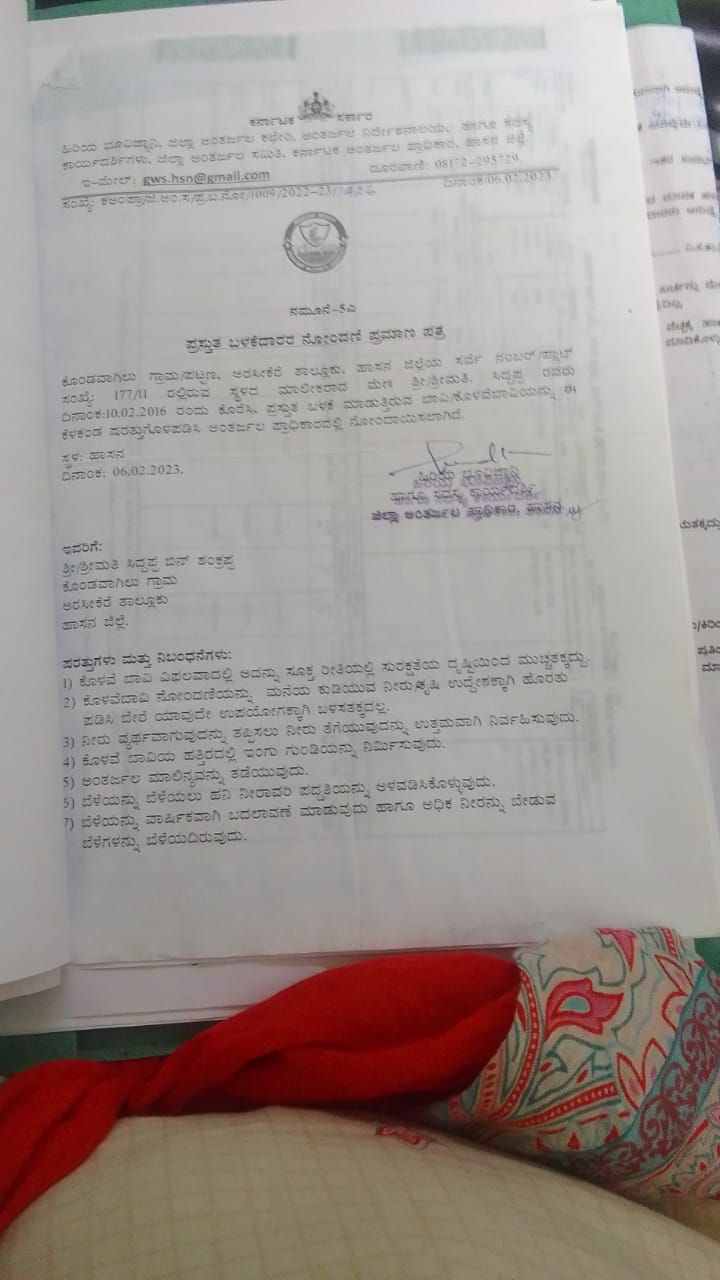 ಕರ್ನಾಟಕ ಸರ್ಕಾರ
ಹಿರಿಯ ಭೂವಿಜ್ಞಾನಿ, ಜಿಲ್ಲಾ ಅಂತರ್ಜಲ ಕಛೇರಿ, ಅಂತರ್ಜಲ ನಿರ್ದೇಶನಾಲಯ, ಹಾಗೂ ಸದಸ್ಯ
ಕಾರ್ಯದರ್ಶಿಗಳು, ಜಿಲ್ಲಾ ಅಂತರ್ಜಲ ಸಮಿತಿ, ಕರ್ನಾಟಕ ಅಂತರ್ಜಲ ಪ್ರಾಧಿಕಾರ, ಹಾಸನ ಜಿಲ್ಲೆ.
ಇ-ಮೇಲ್: gws.hsn@gmail.com ದೂರವಾಣಿ: 08172-295729
ಸಂಖ್ಯೆ: ಕಅಂಪ್ರಾ/ಜಿ.ಅಂ.ಸ/ಪ್ರ.ಬ.ನೋ/1009/2022-23/ ದಿನಾಂಕ:06.02.2023
ನಮೂನೆ-5ಎ
ಪ್ರಸ್ತುತ ಬಳಕೆದಾರರ ನೋಂದಣಿ ಪ್ರಮಾಣ ಪತ್ರ
ಕೊಂಡವಾಗಿಲು ಗ್ರಾಮ/ಪಟ್ಟಣ, ಅರಸೀಕೆರೆ ತಾಲ್ಲೂಕು, ಹಾಸನ ಜಿಲ್ಲೆಯ ಸರ್ವೆ ನಂಬರ್/ಪ್ಲಾಟ್
ಸಂಖ್ಯೆ: 177/11 ರಲ್ಲಿರುವ ಸ್ಥಳದ ಮಾಲೀಕರಾದ ಮೇ॥ ಶ್ರೀ/ಶ್ರೀಮತಿ. ಸಿದ್ದಪ್ಪ ರವರು
ದಿನಾಂಕ:10.02.2016 ರಂದು ಕೊರೆಸಿ, ಪ್ರಸ್ತುತ ಬಳಕೆ ಮಾಡುತ್ತಿರುವ ಬಾವಿ/ಕೊಳವೆಬಾವಿಯನ್ನು ಈ
ಕೆಳಕಂಡ ಷರತ್ತುಗೊಳಪಡಿಸಿ ಅಂತರ್ಜಲ ಪ್ರಾಧಿಕಾರದಲ್ಲಿ ನೋಂದಾಯಿಸಲಾಗಿದೆ.
ಸ್ಥಳ: ಹಾಸನ
ದಿನಾಂಕ: 06.02.2023.
ಹಿರಿಯ ಭೂವಿಜ್ಞಾನಿ
ಹಾಗೂ ಸದಸ್ಯ ಕಾರ್ಯದರ್ಶಿ
ಜಿಲ್ಲಾ ಅಂತರ್ಜಲ ಪ್ರಾಧಿಕಾರ, ಹಾಸನ
ಇವರಿಗೆ:
ಶ್ರೀ/ಶ್ರೀಮತಿ ಸಿದ್ದಪ್ಪ ಬಿನ್ ಶಂಕ್ರಪ್ಪ
ಕೊಂಡವಾಗಿಲು ಗ್ರಾಮ
ಅರಸೀಕೆರೆ ತಾಲ್ಲೂಕು
ಹಾಸನ ಜಿಲ್ಲೆ.
ಷರತ್ತುಗಳು ಮತ್ತು ನಿಬಂಧನೆಗಳು:
1) ಕೊಳವೆ ಬಾವಿ ವಿಫಲವಾದಲ್ಲಿ ಅದನ್ನು ಸೂಕ್ತ ರೀತಿಯಲ್ಲಿ ಸುರಕ್ಷತೆಯ ದೃಷ್ಟಿಯಿಂದ ಮುಚ್ಚತಕ್ಕದ್ದು.
2) ಕೊಳವೆಬಾವಿ ನೋಂದಣಿಯನ್ನು ಮನೆಯ ಕುಡಿಯುವ ನೀರು/ಕೃಷಿ ಉದ್ದೇಶಕ್ಕಾಗಿ ಹೊರತು
ಪಡಿಸಿ ಬೇರೆ ಯಾವುದೇ ಉಪಯೋಗಕ್ಕಾಗಿ ಬಳಸತಕ್ಕದಲ್ಲ.
3) ನೀರು ವ್ಯರ್ಥವಾಗುವುದನ್ನು ತಪ್ಪಿಸಲು ನೀರು ತೆಗೆಯುವುದನ್ನು ಉತ್ತಮವಾಗಿ ನಿರ್ವಹಿಸುವುದು.
4) ಕೊಳವೆ ಬಾವಿಯ ಹತ್ತಿರದಲ್ಲಿ ಇಂಗು ಗುಂಡಿಯನ್ನು ನಿರ್ಮಿಸುವುದು.
5) ಅಂತರ್ಜಲ ಮಾಲಿನ್ಯವನ್ನು ತಡೆಯುವುದು.
6) ಬೆಳೆಯನ್ನು ಬೆಳೆಯಲು ಹನಿ ನೀರಾವರಿ ಪದ್ಧತಿಯನ್ನು ಅಳವಡಿಸಿಕೊಳ್ಳುವುದು.
7) ಬೆಳೆಯನ್ನು ವಾರ್ಷಿಕವಾಗಿ ಬದಲಾವಣೆ ಮಾಡುವುದು ಹಾಗೂ ಅಧಿಕ ನೀರನ್ನು ಬೇಡುವ
ಬೆಳೆಗಳನ್ನು ಬೆಳೆಯದಿರುವುದು.